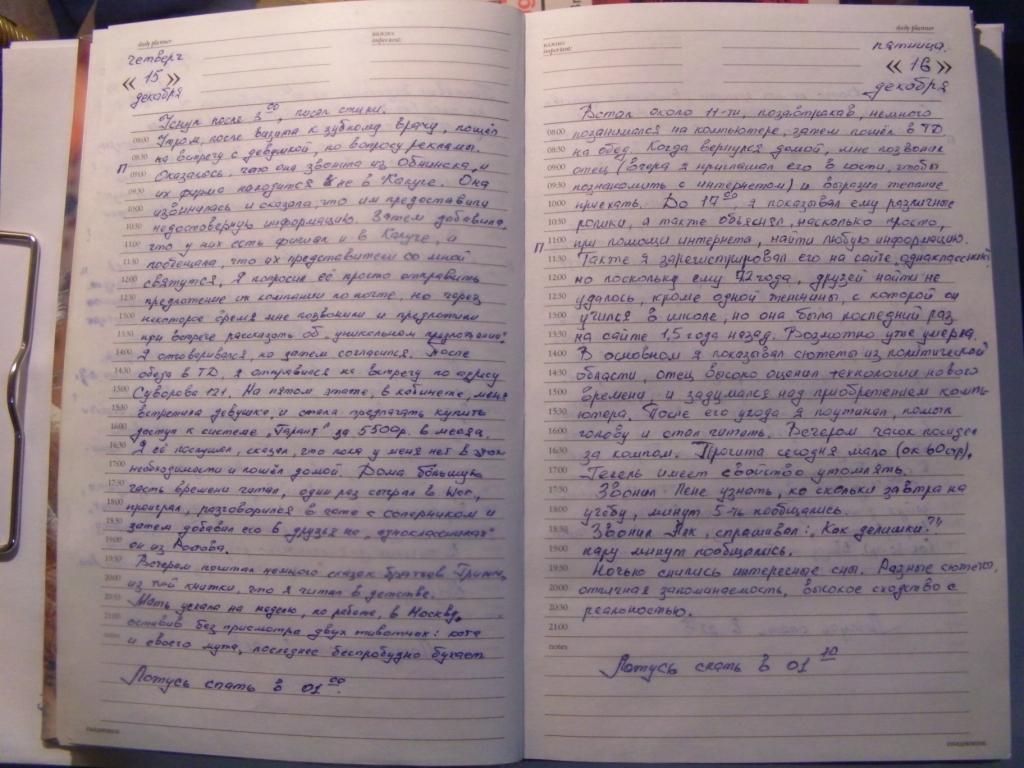 daily planner
важно
important:
четверг
« 15 »
декабря
Уснул после 3 00, писал стихи.
08:00 Утром, после визита к зубному врачу, пошёл
08:30 на встречу с девушкой, по вопросу рекламы.
П 09:00 Оказалось, что она звонила из Обнинска, и
09:30 их фирма находится не в Калуге. Она
10:00 извинилась и сказала, что им предоставили
10:30 недостоверную информацию. Затем добавила,
11:00 что у них есть филиал и в Калуге, и
11:30 пообещала, что их представители со мной
12:00 свяжутся, я попросил её просто отправить
12:30 предложение от компании по почте, но через
13:00 некоторое время мне позвонили и предложили
13:30 при встрече рассказать об „уникальном предложении"
14:00 Я отговаривался, но затем согласился. После
14:30 обеда в ТД, я отправился на встречу по адресу
15:00 Суворова 121. На пятом этаже, в кабинете, меня
15:30 встретила девушка и стала предлагать купить
16:00 доступ к системе „Гарант" за 5500р. в месяц.
16:30 Я её послушал, сказал, что пока у меня нет в этом
17:00 необходимости и пошёл домой. Дома большую
17:30 часть времени читал, один раз сыграл в
18:00 проиграл, разговорился в чате с соперником и
18:30 затем добавил его в друзья на „одноклассниках"
19:00 он из Ростова.
19:30 Вечером почитал немного сказок братьев Гримм,
20:00 из той книжки, что я читал в детстве.
20:30 Мать уехала на неделю, по работе, в Москву,
21:00 оставив без присмотра двух животных: кота
notes и своего мужа, последнее беспробудно бухает
Ложусь спать в 01 00.
ежедневник
важно
important:
daily planner
пятница.
« 16 »
декабря
Встал около 11-ти, позавтракав, немного
08:00 позанимался на компьютере, затем пошёл в ТД
08:30 на обед. Когда вернулся домой, мне позвонил
09:00 отец (вчера я приглашал его в гости, чтобы
09:30 познакомить с интернетом) и выразил желание
10:00 приехать. До 17 00, я показывал ему различные
10:30 ролики, а также объяснял, насколько просто,
П 11:00 при помощи интернета, найти любую информацию.
11:30 Также я зарегистрировал его на сайте „одноклассники"
12:00 но поскольку ему 72 года, друзей найти не
12:30 удалось, кроме одной женщины, с которой он
13:00 учился в школе, но она была последний раз
13:30 на сайте 1,5 года назад. Возможно уже умерла.
14:00 В основном я показывал сюжеты из политической
14:30 области, отец высоко оценил технологии нового
15:00 времени, и задумался над приобретением компь-
15:30 ютера. После его ухода я поужинал, помыл
16:00 голову и стал читать. Вечером часок посидел
16:30 за компом. Прочитал сегодня мало (ок 60стр),
17:00 Гегель имеет свойство утомлять.
17:30 Звонил Лене узнать, ко скольки завтра на
18:00 учёбу, минут 5-ть пообщались.
18:30 Звонил спрашивал: „Как делишки?"
19:00 пару минут пообщались.
19:30 Ночью снились интересные сны. Разные сюжеты,
20:00 отличная запоминаемость, высокое сходство с
20:30 реальностью.
21:00
notes
Ложусь спать в 01 10
ежедневник